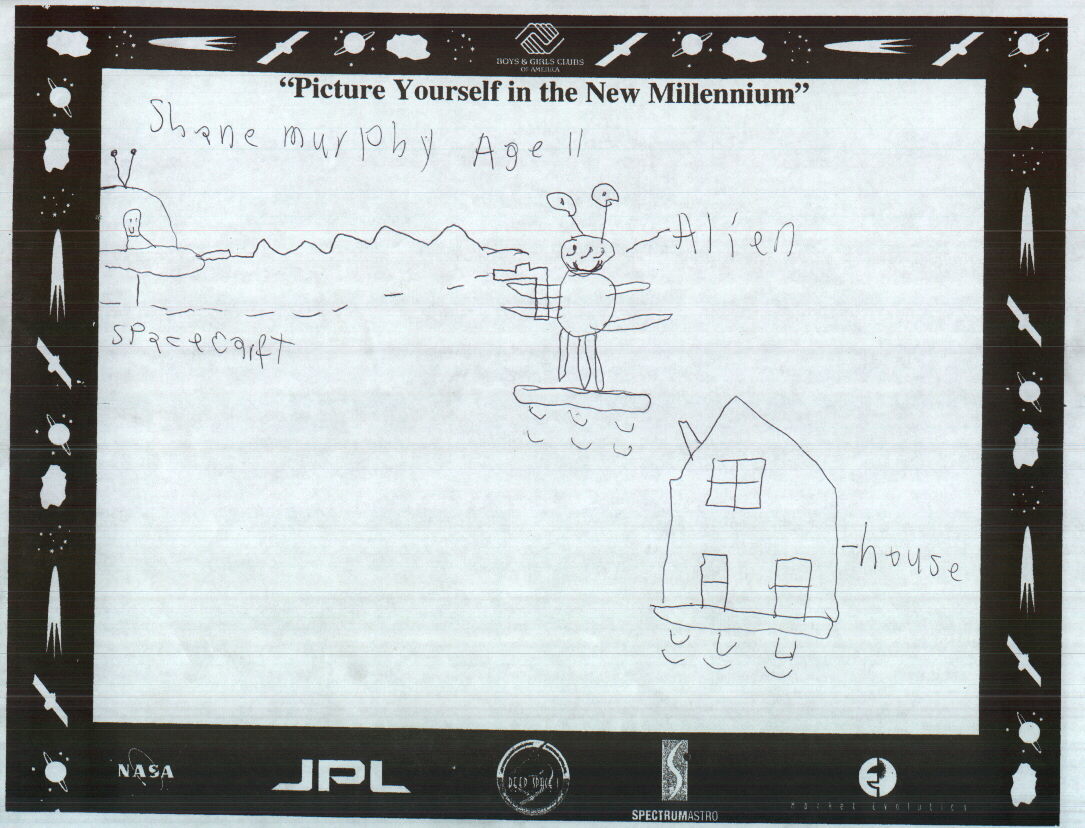 BOYS & GIRLS CLUBS
OF AMERICA
“Picture Yourself in the New Millennium”
Shane murphy Age 11
Alien
spacecarft
house
NASA
JPL
DEEP SPACE 1
SPECTRUMASTRO
Market Evolution